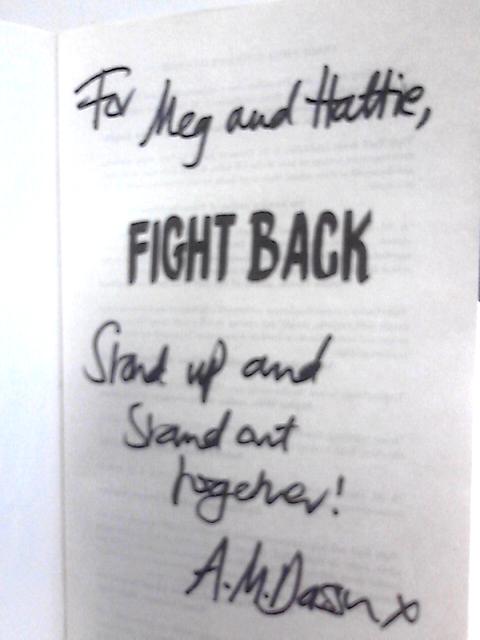 For Meg and Hattie,
FIGHT BACK
Stand up and
Stand out
together!
A.M.Dassu x